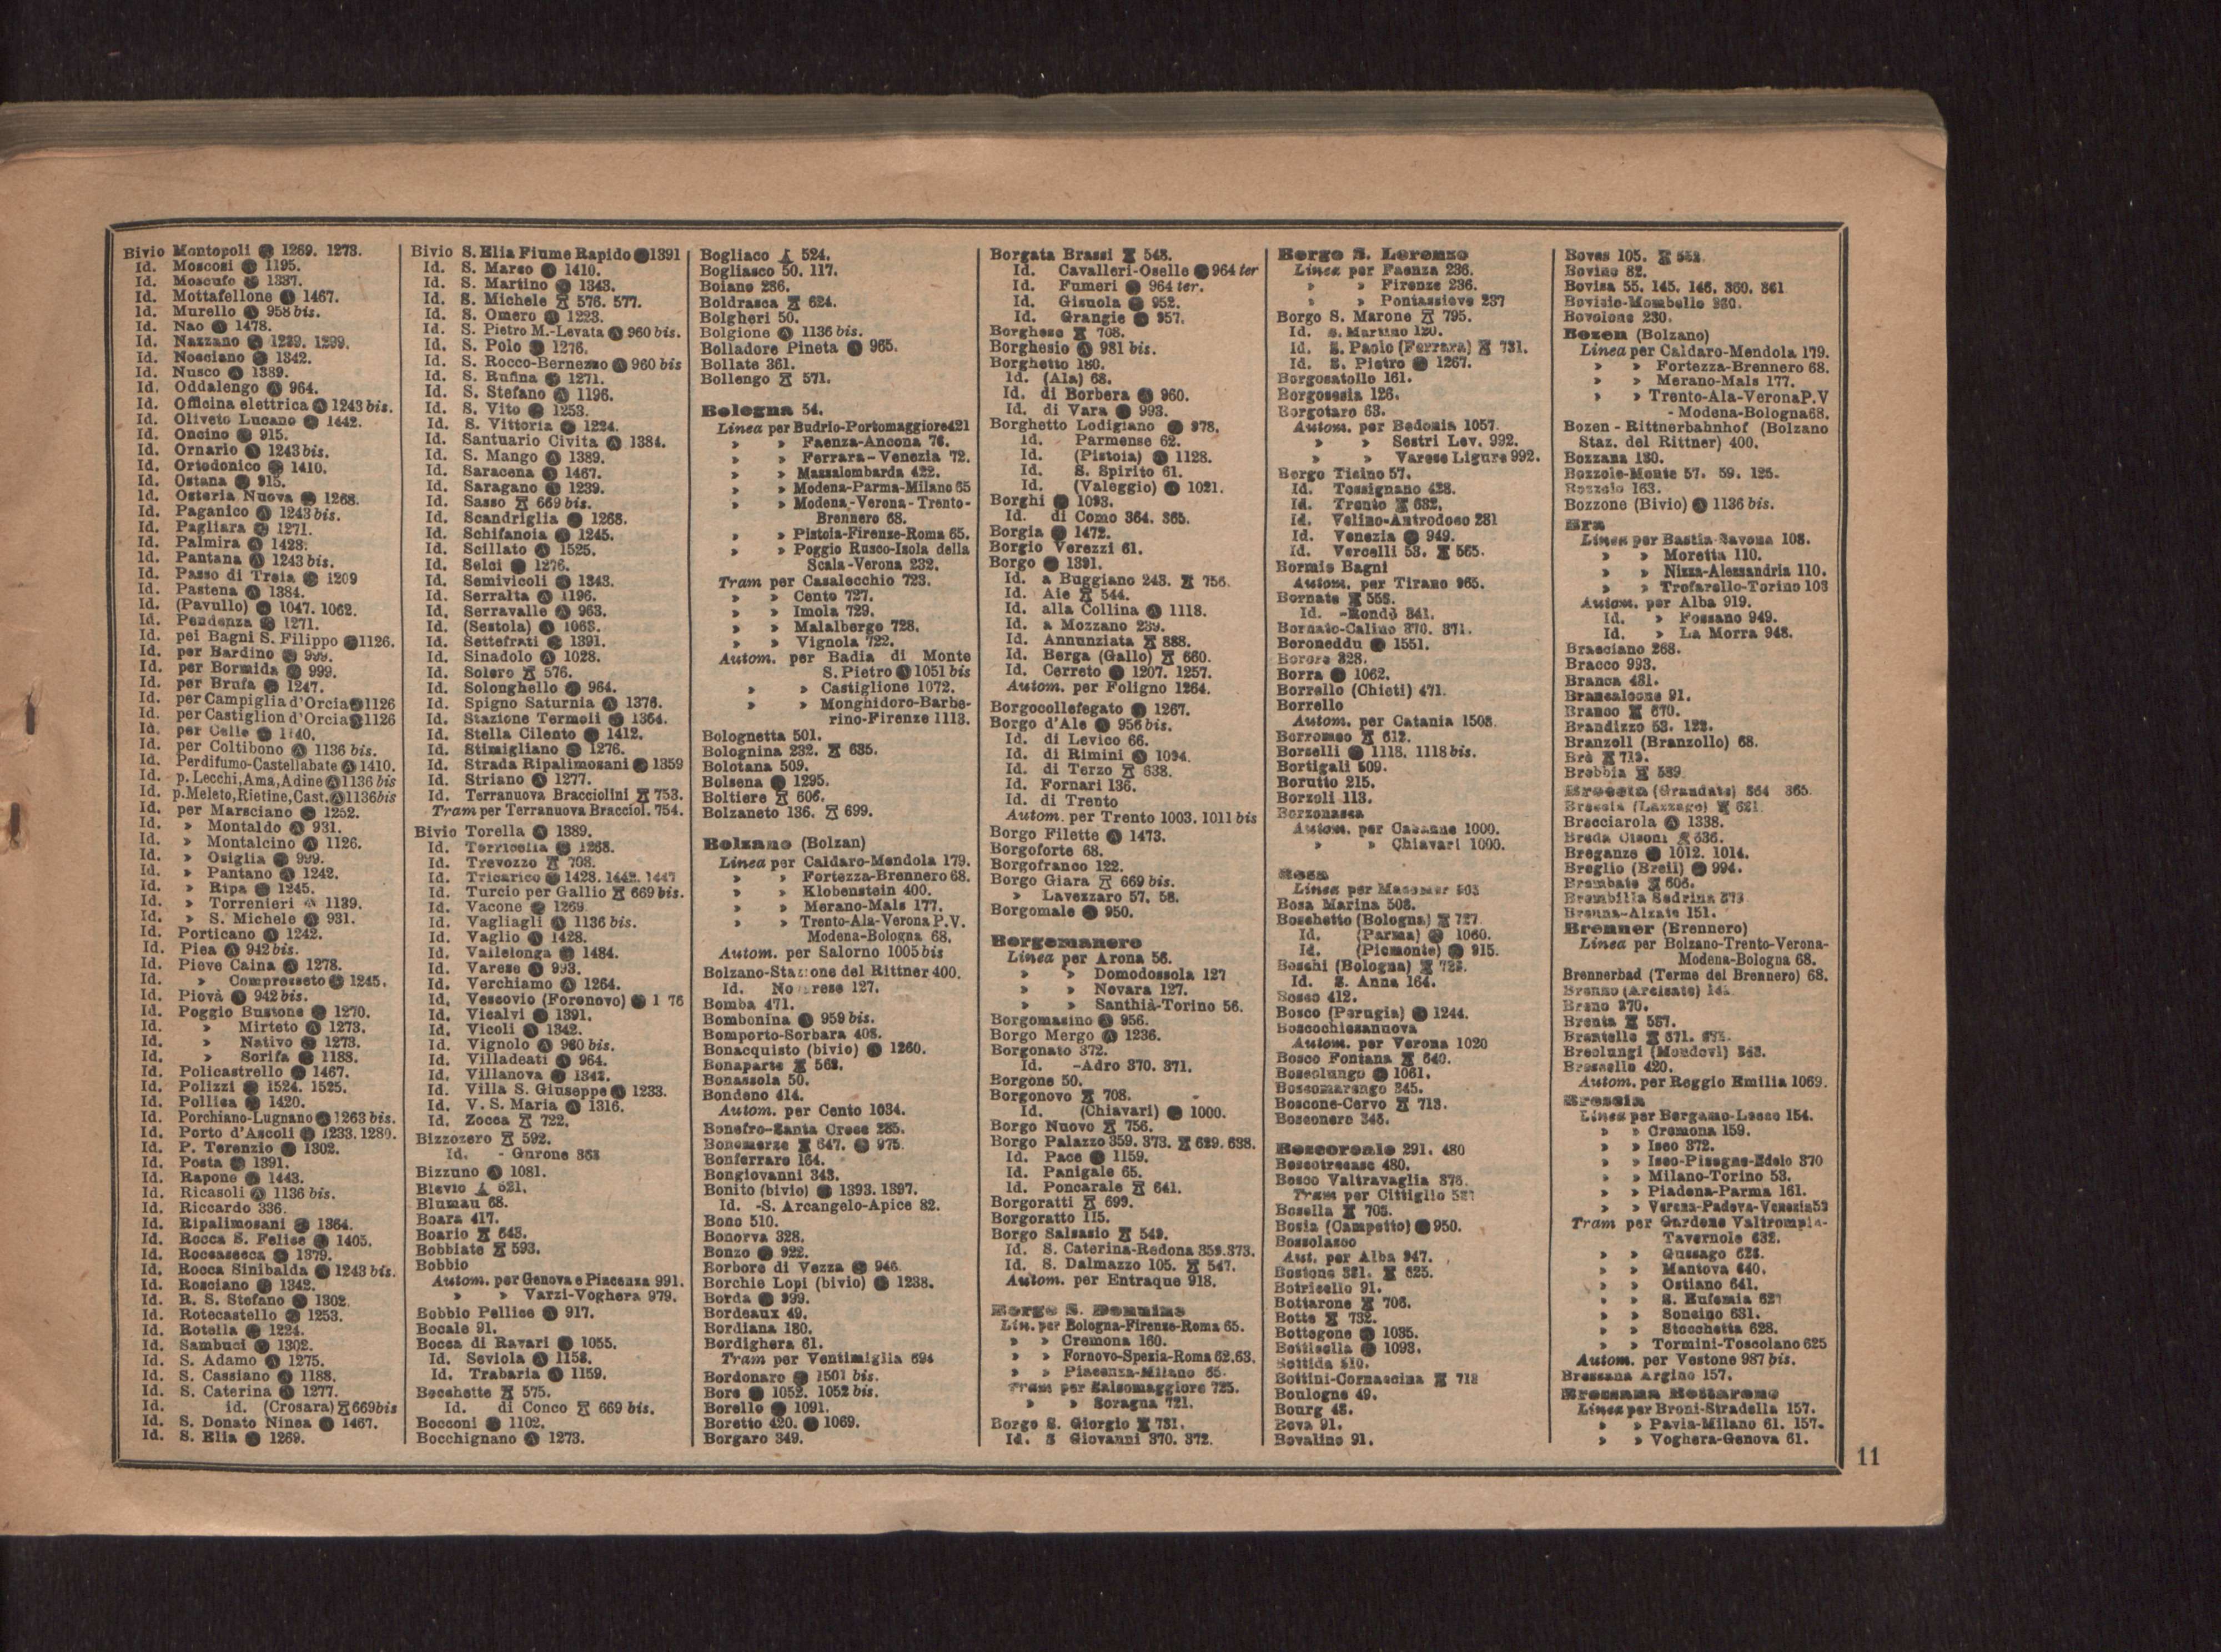 Bivio Montopoli Ⓐ 1269. 1273.
Id. Moscosi Ⓐ 1195.
Id. Moscufo Ⓐ 1337.
Id. Mottafellone Ⓐ 1467.
Id. Murello Ⓐ 958 bis.
Id. Nao Ⓐ 1478.
Id. Nazzano Ⓐ 1289. 1299.
Id. Nosciano Ⓐ 1342.
Id. Nusco Ⓐ 1389.
Id. Oddalengo Ⓐ 964.
Id. Officina elettrica Ⓐ 1243 bis.
Id. Oliveto Lucano Ⓐ 1442.
Id. Oncino Ⓐ 915.
Id. Ornario Ⓐ 1243 bis.
Id. Ortodonico Ⓐ 1410.
Id. Ostana Ⓐ 915.
Id. Osteria Nuova Ⓐ 1268.
Id. Paganico Ⓐ 1243 bis.
Id. Pagliara Ⓐ 1271.
Id. Palmira Ⓐ 1428.
Id. Pantana Ⓐ 1243 bis.
Id. Passo di Treia Ⓐ 1209
Id. Pastena Ⓐ 1384.
Id. (Pavullo) Ⓐ 1047. 1062.
Id. Pendenza Ⓐ 1271.
Id. pei Bagni S. Filippo Ⓐ 1126.
Id. per Bardino Ⓐ 999.
Id. per Bormida Ⓐ 999.
Id. per Brufa Ⓐ 1247.
Id. per Campiglia d'Orcia Ⓐ 1126
Id. per Castiglion d'Orcia Ⓐ 1126
Id. per Celle Ⓐ 1140.
Id. per Coltibono Ⓐ 1136 bis.
Id. Perdifumo-Castellabate Ⓐ 1410.
Id. p. Lecchi, Ama, Adine Ⓐ 1136 bis
Id. p. Meleto, Rietine, Cast. Ⓐ 1136 bis
Id. per Marsciano Ⓐ 1252.
Id. » Montaldo Ⓐ 931.
Id. » Montalcino Ⓐ 1126.
Id. » Osiglia Ⓐ 999.
Id. » Pantano Ⓐ 1242.
Id. » Ripa Ⓐ 1245.
Id. » Torrenieri Ⓐ 1139.
Id. » S. Michele Ⓐ 931.
Id. Porticano Ⓐ 1242.
Id. Piea Ⓐ 942 bis.
Id. Pieve Caina Ⓐ 1278.
Id. » Compresseto Ⓐ 1245.
Id. Piovà Ⓐ 942 bis.
Id. Poggio Bustone Ⓐ 1270.
Id. » Mirteto Ⓐ 1273.
Id. » Nativo Ⓐ 1273.
Id. » Sorifa Ⓐ 1188.
Id. Policastrello Ⓐ 1467.
Id. Polizzi Ⓐ 1524. 1525.
Id. Pollica Ⓐ 1420.
Id. Porchiano-Lugnano Ⓐ 1263 bis.
Id. Porto d'Ascoli Ⓐ 1233. 1280.
Id. P. Terenzio Ⓐ 1302.
Id. Posta Ⓐ 1391.
Id. Rapone Ⓐ 1443.
Id. Ricasoli Ⓐ 1136 bis.
Id. Riccardo 336.
Id. Ripalimosani Ⓐ 1364.
Id. Rocca S. Felice Ⓐ 1405.
Id. Roccasecca Ⓐ 1379.
Id. Rocca Sinibalda Ⓐ 1243 bis.
Id. Rosciano Ⓐ 1342.
Id. R. S. Stefano Ⓐ 1302.
Id. Rotecastello Ⓐ 1253.
Id. Rotella Ⓐ 1224.
Id. Sambuci Ⓐ 1302.
Id. S. Adamo Ⓐ 1275.
Id. S. Cassiano Ⓐ 1188.
Id. S. Caterina Ⓐ 1277.
Id. id. (Crosara) 669 bis
Id. S. Donato Ninea Ⓐ 1467.
Id. S. Elia Ⓐ 1269.
Bivio S. Elia Fiume Rapido Ⓐ 1391
Id. S. Marzo Ⓐ 1410.
Id. S. Martino Ⓐ 1343.
Id. S. Michele 576. 577.
Id. S. Omero Ⓐ 1223.
Id. S. Pietro M.-Levata Ⓐ 960 bis.
Id. S. Polo Ⓐ 1276.
Id. S. Rocco-Bernezzo Ⓐ 960 bis
Id. S. Rufina Ⓐ 1271.
Id. S. Stefano Ⓐ 1196.
Id. S. Vito Ⓐ 1253.
Id. S. Vittoria Ⓐ 1224.
Id. Santuario Civita Ⓐ 1384.
Id. S. Mango Ⓐ 1389.
Id. Saracena Ⓐ 1467.
Id. Saragano Ⓐ 1239.
Id. Sasso 669 bis.
Id. Scandriglia Ⓐ 1268.
Id. Schifanoia Ⓐ 1245.
Id. Scillato Ⓐ 1525.
Id. Selci Ⓐ 1276.
Id. Semivicoli Ⓐ 1343.
Id. Serralta Ⓐ 1196.
Id. Serravalle Ⓐ 963.
Id. (Sestola) Ⓐ 1063.
Id. Settefrati Ⓐ 1391.
Id. Sinadolo Ⓐ 1028.
Id. Solero 576.
Id. Solonghello Ⓐ 964.
Id. Spigno Saturnia Ⓐ 1376.
Id. Stazione Termoli Ⓐ 1364.
Id. Stella Cilento Ⓐ 1412.
Id. Stimigliano Ⓐ 1276.
Id. Strada Ripalimosani Ⓐ 1359
Id. Striano Ⓐ 1277.
Id. Terranuova Bracciolini 753.
Tram per Terranuova Bracciol. 754.
Bivio Torella Ⓐ 1389.
Id. Torricella Ⓐ 1268.
Id. Trevozzo 708.
Id. Tricarico Ⓐ 1428. 1442. 1447
Id. Turcio per Gallio 669 bis.
Id. Vacone Ⓐ 1269.
Id. Vagliagli Ⓐ 1136 bis.
Id. Vaglio Ⓐ 1428.
Id. Vallelonga Ⓐ 1484.
Id. Varese Ⓐ 993.
Id. Verchiamo Ⓐ 1264.
Id. Vescovio (Foronovo) Ⓐ 1 76
Id. Vicalvi Ⓐ 1391.
Id. Vicoli Ⓐ 1342.
Id. Vignolo Ⓐ 960 bis.
Id. Villadeati Ⓐ 964.
Id. Villanova Ⓐ 1342.
Id. Villa S. Giuseppe Ⓐ 1233.
Id. V. S. Maria Ⓐ 1316.
Id. Zocca 722.
Bizzozero 592.
Id. - Gurone 363
Bizzuno Ⓐ 1081.
Blevio 521.
Blumau 68.
Boara 417.
Boario 643.
Bobbiate 593.
Bobbio
Autom. per Genova e Piacenza 991.
» » Varzi-Voghera 979.
Bobbio Pellice Ⓐ 917.
Bocale 91.
Bocca di Ravari Ⓐ 1055.
Id. Seviola Ⓐ 1158.
Id. Trabaria Ⓐ 1159.
Bocchette 575.
Id. di Conco 669 bis.
Bocconi Ⓐ 1102.
Bocchignano Ⓐ 1273.
Bogliaco 524.
Bogliasco 50. 117.
Boiano 286.
Boldrasca 624.
Bolgheri 50.
Bolgione Ⓐ 1136 bis.
Bolladore Pineta Ⓐ 965.
Bollate 361.
Bollengo 571.
Bologna 54.
Linea per Budrio-Portomaggiore 421
» » Faenza-Ancona 76.
» » Ferrara-Venezia 72.
» » Massalombarda 422.
» » Modena-Parma-Milano 65
» » Modena-Verona-Trento-
Brennero 68.
» » Pistoia-Firenze-Roma 65.
» » Poggio Rusco-Isola della
Scala-Verona 232.
Tram per Casalecchio 723.
» » Cento 727.
» » Imola 729.
» » Malalbergo 728.
» » Vignola 722.
Autom. per Badia di Monte
S. Pietro Ⓐ 1051 bis
» » Castiglione 1072.
» » Monghidoro-Barbe-
rino-Firenze 1113.
Bolognetta 501.
Bolognina 232. 635.
Bolotana 509.
Bolsena Ⓐ 1295.
Boltiere 606.
Bolzaneto 136. 699.
Bolzano (Bolzan)
Linea per Caldaro-Mendola 179.
» » Fortezza-Brennero 68.
» » Klobenstein 400.
» » Merano-Mals 177.
» » Trento-Ala-Verona P.V.
Modena-Bologna 68.
Autom. per Salorno 1005 bis
Bolzano-Stazione del Rittner 400.
Id. No rese 127.
Bomba 471.
Bombonina Ⓐ 959 bis.
Bomporto-Sorbara 408.
Bonacquisto (bivio) Ⓐ 1260.
Bonaparte 562.
Bonassola 50.
Bondeno 414.
Autom. per Cento 1034.
Bonefro-Santa Croce 285.
Bonemerse 647. Ⓐ 975.
Bonferraro 164.
Bongiovanni 343.
Bonito (bivio) Ⓐ 1393. 1397.
Id. -S. Arcangelo-Apice 82.
Bono 510.
Bonorva 328.
Bonzo Ⓐ 922.
Borbore di Vezza Ⓐ 946
Borchie Lopi (bivio) Ⓐ 1238.
Borda Ⓐ 999.
Bordeaux 49.
Bordiana 180.
Bordighera 61.
Tram per Ventimiglia 694
Bordonaro Ⓐ 1501 bis.
Bore Ⓐ 1052. 1052 bis.
Borello Ⓐ 1091.
Boretto 420. Ⓐ 1069.
Borgaro 349.
Borgata Brassi 548.
Id. Cavalleri-Oselle Ⓐ 964 ter
Id. Fumeri Ⓐ 964 ter.
Id. Gisuola Ⓐ 952.
Id. Grangie Ⓐ 957.
Borghese 708.
Borghesio Ⓐ 981 bis.
Borghetto 180.
Id. (Ala) 68.
Id. di Borbera Ⓐ 960.
Id. di Vara Ⓐ 993.
Borghetto Lodigiano Ⓐ 978.
Id. Parmense 62.
Id. (Pistoia) Ⓐ 1128.
Id. S. Spirito 61.
Id. (Valeggio) Ⓐ 1021.
Borghi Ⓐ 1093.
Id. di Como 364. 365.
Borgia Ⓐ 1472.
Borgio Verezzi 61.
Borgo Ⓐ 1391.
Id. a Buggiano 243. 756.
Id. Aie 544.
Id. alla Collina Ⓐ 1118.
Id. a Mozzano 239.
Id. Annunziata 888.
Id. Berga (Gallo) 660.
Id. Cerreto Ⓐ 1207. 1257.
Autom. per Foligno 1264.
Borgocollefegato Ⓐ 1267.
Borgo d'Ale Ⓐ 956 bis.
Id. di Levico 66.
Id. di Rimini Ⓐ 1094.
Id. di Terzo 638.
Id. Fornari 136.
Id. di Trento
Autom. per Trento 1003. 1011 bis
Borgo Filette Ⓐ 1473.
Borgoforte 68.
Borgofranco 122.
Borgo Giara 669 bis.
» Lavezzaro 57. 58.
Borgomale Ⓐ 950.
Borgomanero
Linea per Arona 56.
» » Domodossola 127
» » Novara 127.
» » Santhià-Torino 56.
Borgomasino Ⓐ 956.
Borgo Mergo Ⓐ 1236.
Borgonato 372.
Id. -Adro 370. 371.
Borgone 50.
Borgonovo 708.
Id. (Chiavari) Ⓐ 1000.
Borgo Nuovo 756.
Borgo Palazzo 359. 373. 629. 638.
Id. Pace Ⓐ 1159.
Id. Panigale 65.
Id. Poncarale 641.
Borgoratti 699.
Borgoratto 115.
Borgo Salsasio 549.
Id. S. Caterina-Redona 359.373.
Id. S. Dalmazzo 105. 547.
Autom. per Entraque 918.
Borgo S. Donnino
Lin. per Bologna-Firenze-Roma 65.
» » Cremona 160.
» » Fornovo-Spezia-Roma 62.63.
» » Piacenza-Milano 65.
Tram per Salsomaggiore 725.
» » Soragna 721.
Borgo S. Giorgio 731.
Id. S Giovanni 370. 372.
Borgo S. Lorenzo
Linea per Faenza 236.
» » Firenze 236.
» » Pontassieve 237
Borgo S. Marone 795.
Id. S. Martino 120.
Id. S. Paolo (Ferrara) 731.
Id. S. Pietro Ⓐ 1267.
Borgosatollo 161.
Borgosesia 126.
Borgotaro 63.
Autom. per Bedonia 1057.
» » Sestri Lev. 992.
» » Varese Ligure 992.
Borgo Ticino 57.
Id. Tossignano 428.
Id. Trento 632.
Id. Velino-Antrodoco 281
Id. Venezia Ⓐ 949.
Id. Vercelli 53. 565.
Bormio Bagni
Autom. per Tirano 965.
Bornate 558.
Id. -Rondò 341.
Bornato-Calino 370. 371.
Boroneddu Ⓐ 1551.
Borore 328.
Borra Ⓐ 1062.
Borrello (Chieti) 471.
Borrello
Autom. per Catania 1508.
Borromeo 612.
Borselli Ⓐ 1118. 1118 bis.
Bortigali 509.
Borutto 215.
Borzoli 113.
Borzonasca
Autom. per Cabanne 1000.
» » Chiavari 1000.
Bosa
Linea per Macomer 503
Bosa Marina 508.
Boschetto (Bologna) 727
Id. (Parma) Ⓐ 1060.
Id. (Piemonte) Ⓐ 915.
Boschi (Bologna)
Id. S. Anna 164.
Bosco 412.
Bosco (Perugia) Ⓐ 1244.
Boscochiesanuova
Autom. per Verona 1020
Bosco Fontana 640.
Boscolungo Ⓐ 1061.
Boscomarengo 345.
Boscone-Cervo 713.
Bosconero 346.
Boscoreale 291. 480
Boscotrecase 480.
Bosco Valtravaglia 376.
Tram per Cittiglio
Bosella 705.
Bosia (Campetto) Ⓐ 950.
Bossolasco
Aut. per Alba 947.
Bostone 381. 625.
Botricello 91.
Bottarone 706.
Botte 732.
Bottegone Ⓐ 1035.
Botticella Ⓐ 1093.
Bottida 510.
Bottini-Cornascina 718
Boulogne 49.
Bourg 48.
Bova 91.
Bovalino 91.
Boves 105.
Bovino 82.
Bovisa 55. 145. 146. 360. 361
Bovisio-Mombello 360.
Bovolone 230.
Bozen (Bolzano)
Linea per Caldaro-Mendola 179.
» » Fortezza-Brennero 68.
» » Merano-Mals 177.
» » Trento-Ala-Verona P.V
- Modena-Bologna 68.
Bozen - Rittnerbahnhof (Bolzano
Staz. del Rittner) 400.
Bozzana 180.
Bozzole-Monte 57. 59. 125.
Bozzolo 163.
Bozzone (Bivio) Ⓐ 1136 bis.
Bra
Linea per Bastia-Savona 108.
» » Moretta 110.
» » Nizza-Alessandria 110.
» » Trofarello-Torino 103
Autom. per Alba 919.
Id. » Fossano 949.
Id. » La Morra 948.
Bracciano 268.
Bracco 993.
Branca 481.
Brancaleone 91.
Branco 670.
Brandizzo 53. 122.
Branzoll (Branzollo) 68.
Brè 719.
Brebbia 589
Breccia (Grandate) 364 365.
Breccia (Lazzago) 621.
Brecciarola Ⓐ 1338.
Breda Cisoni 636.
Breganze Ⓐ 1012. 1014.
Breglio (Breil) Ⓐ 994.
Brembate 606.
Brembilla Sedrina 373
Brenna-Alzate 151.
Brenner (Brennero)
Linea per Bolzano-Trento-Verona-
Modena-Bologna 68.
Brennerbad (Terme del Brennero) 68.
Brenno (Arcisate)
Breno 370.
Brenta 587.
Brentelle 671.
Breolungi (Mondovì) 343.
Brescello 420.
Autom. per Reggio Emilia 1069.
Brescia
Linea per Bergamo-Lecco 154.
» » Cremona 159.
» » Iseo 372.
» » Iseo-Pisogne-Edolo 370
» » Milano-Torino 53.
» » Piadena-Parma 161.
» » Verona-Padova-Venezia 53
Tram per Gardone Valtrompia-
Tavernole 632.
» » Gussago 628.
» » Mantova 640.
» » Ostiano 641.
» » S. Eufemia 627
» » Soncino 631.
» » Stocchetta 628.
» » Tormini-Toscolano 625
Autom. per Vestone 987 bis.
Bressana Argine 157.
Bressana Bottarone
Linea per Broni-Stradella 157.
» » Pavia-Milano 61. 157.
» » Voghera-Genova 61.
11